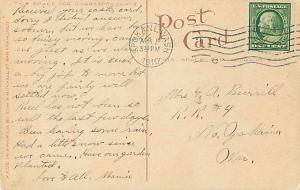 THIS SPACE FOR CORRESPONDENCE
Post Card
SPOKANE, WASH.
APR
3 30 PM
1910
Received your card, and
sorry I didn't answer
sooner, but we have been
so busy moving, came
just as we were
moving. It is such
a big job to move but
we are fairly well
settled now.
Neil has not been so
well the last few days.
Been having some rain,
Had a little snow since
we came. Have our garden
planted.
Love to All. Mamie
Mrs E. A. Burrill
R.R. #4
No. Yakima
Wn.